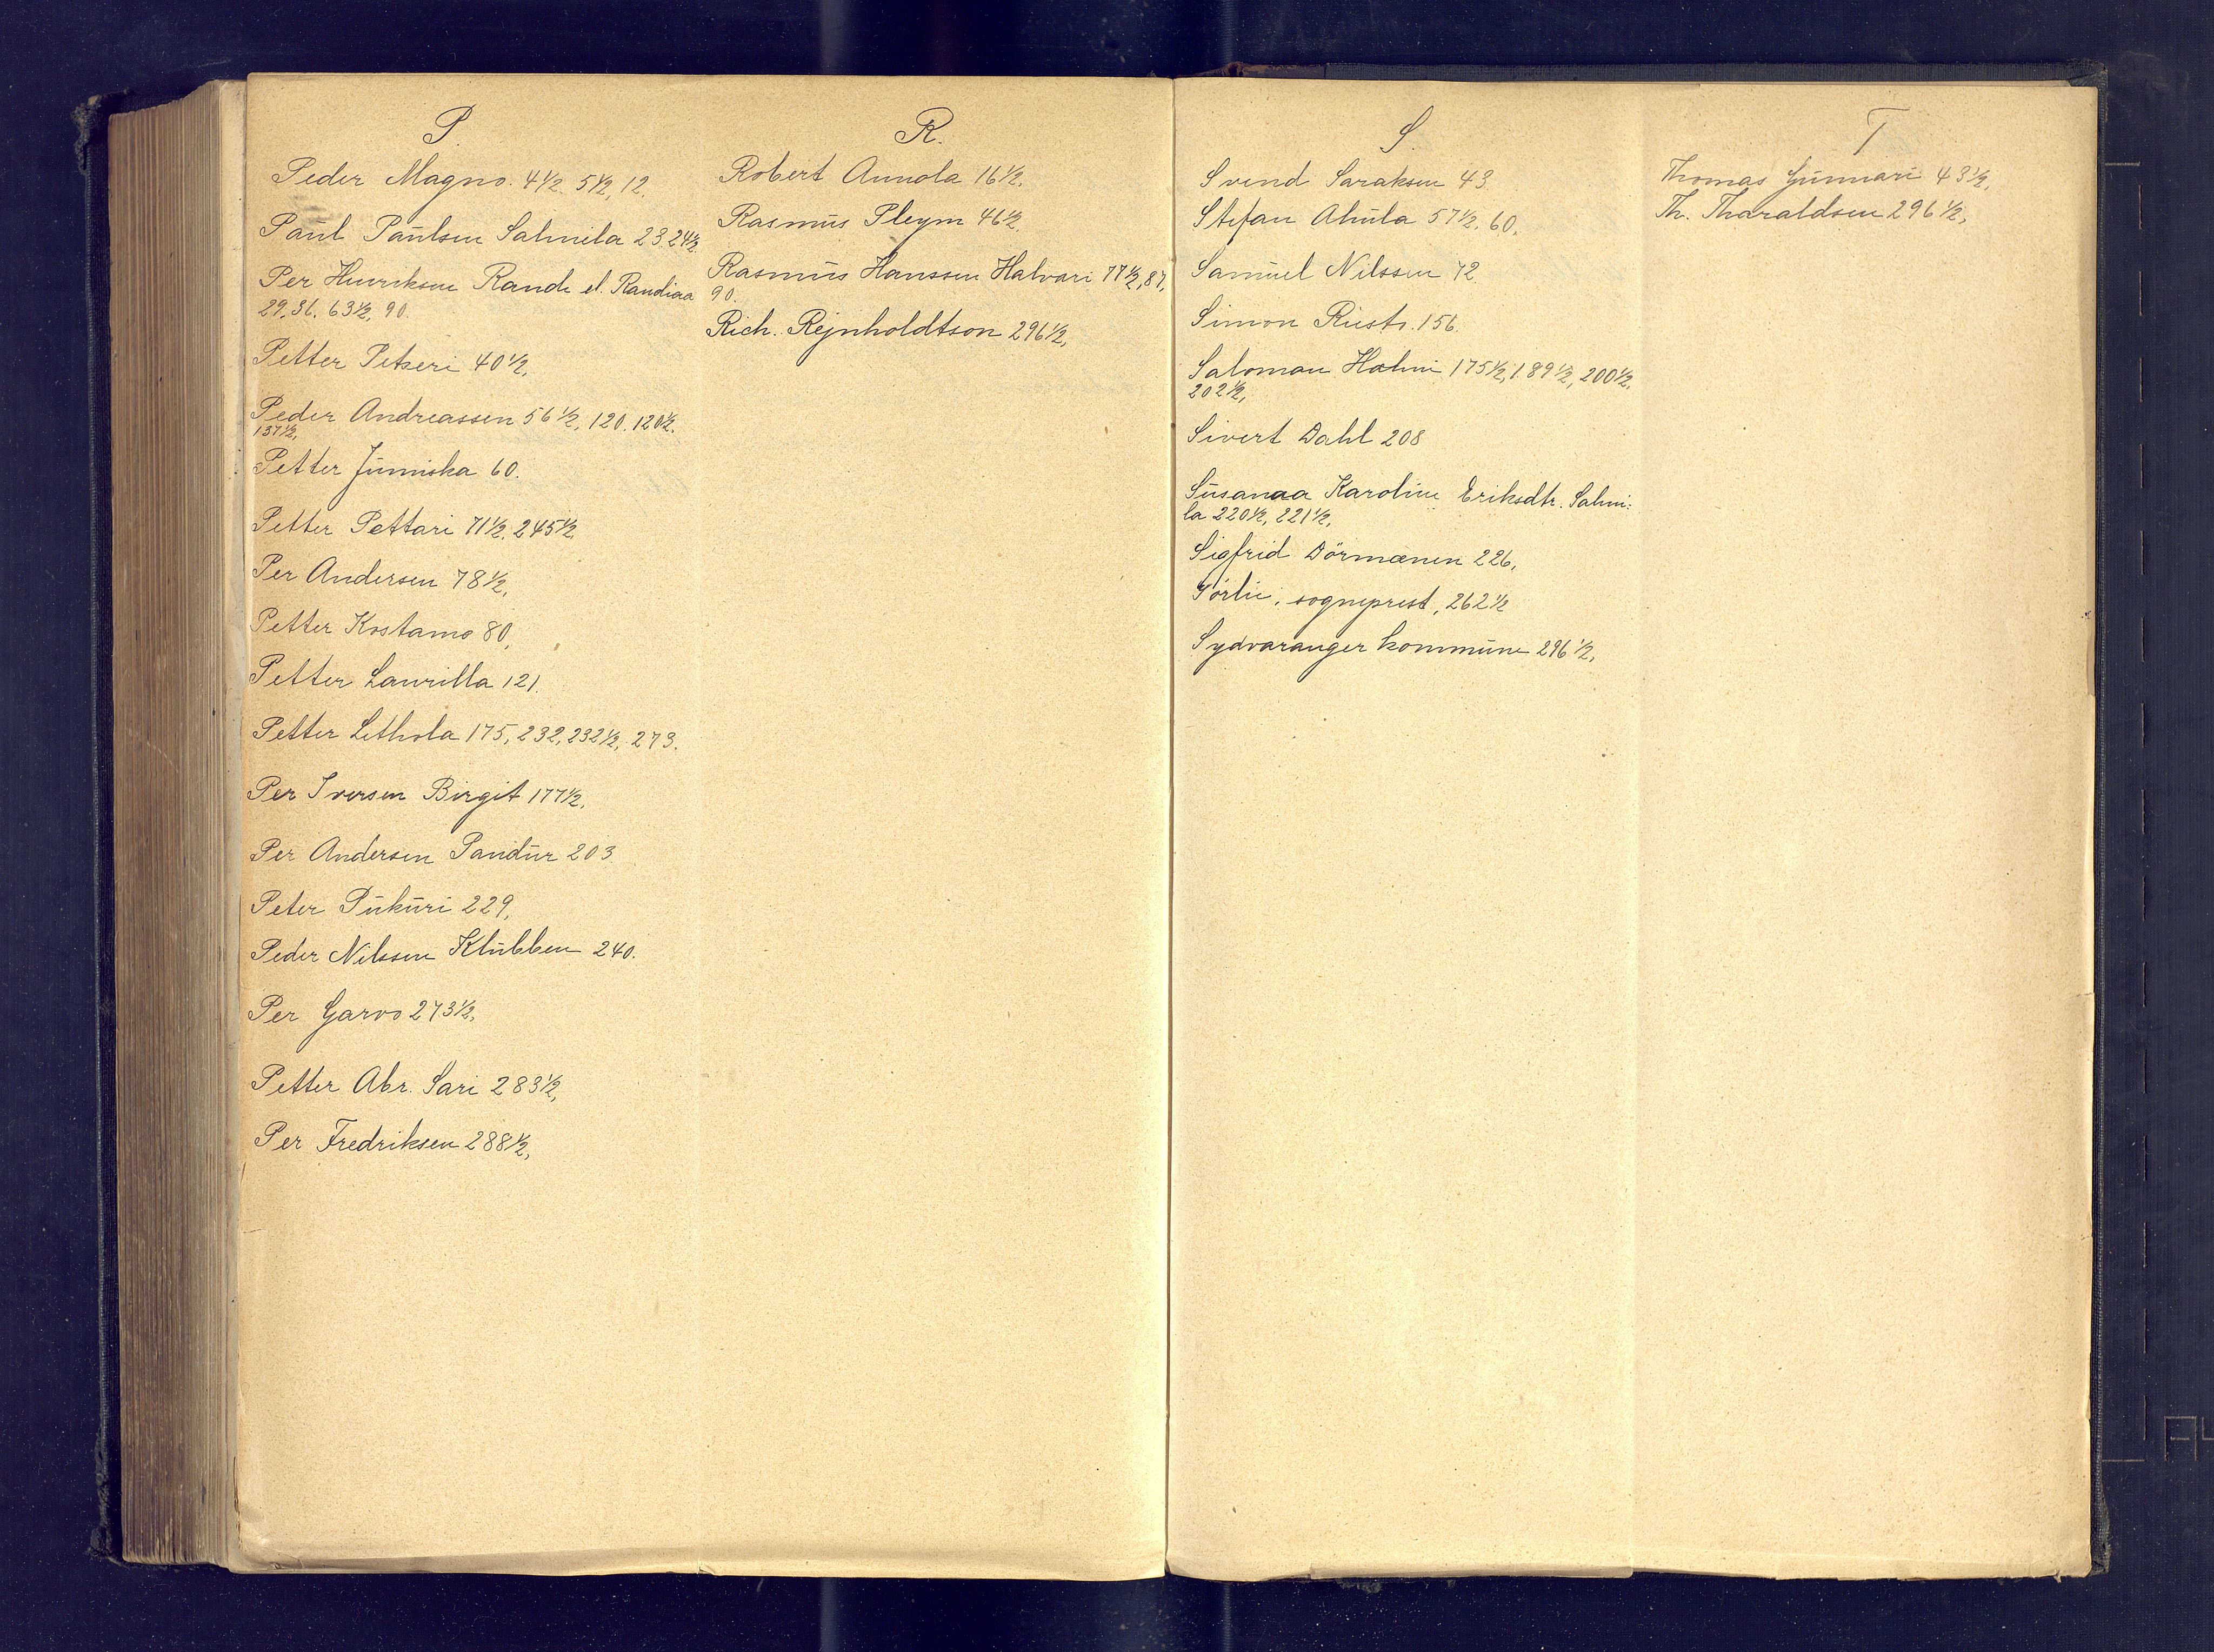 P.
Peder Magno. 4½. 5½, 12.
Paul Paulsen Salmila 23. 24½.
Per Henriksen Rande el. Randiaa
29. 36. 63½, 90.
Petter Petseri 40½,
Peder Andreassen 56½, 120. 120½.
137½,
Petter Jumiska 60.
Petter Pettari 71½. 245½
Per Andersen 78½,
Petter Kostamo 80,
Petter Laurilla 121.
Petter Lethola 175, 232, 232½, 273.
Per Iversen Birgit 177½,
Per Andersen Pandur 203
Peter Pukuri 229,
Peder Nilssen Klubben 240.
Per Garvo 273½,
Petter Abr. Sari 283½,
Per Fredriksen 288½,
R.
Robert Annola 16½.
Rasmus Pleym 46½,
Rasmus Hanssen Halvari 77½, 87,
90.
Rich. Rejnholdtson 296½,
S.
Svend Saraksen 43.
Stefan Ahula 57½. 60.
Samuel Nilssen 72
Simon Rusto. 156.
Saloman Halmi 175½, 189½, 200½.
202½,
Sivert Dahl 208
Susanaa Karoline Eriksdtr. Salmi-
la 220½, 221½,
Sigfrid Dörmænen 226,
Sörlie, sogneprest, 262½
Sydvaranger kommune 296½,
T
Thomas Gunnari 43½,
Th. Tharaldsen 296½,